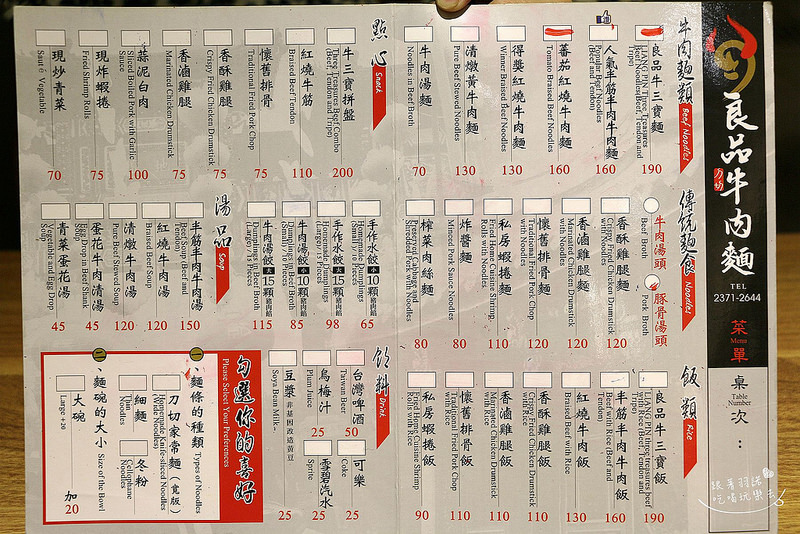 良品牛肉麵
刀切
TEL
2371-2644
菜單
Menu
桌次：
Table
Number
牛肉麵類
Beef Noodles
良品牛三寶麵
LIANG PIN Three Treasures
Beef Noodles(Beef, Tendon and
Tripe)
190
人氣半筋半肉牛肉麵
Popular Beef Noodles
(Beef and Tendon)
160
蕃茄紅燒牛肉麵
Tomato Braised Beef Noodles
160
得獎紅燒牛肉麵
Winner Braised Beef Noodles
130
清燉黃牛肉麵
Pure Beef Stewed Noodles
130
牛肉湯麵
Noodles in Beef Broth
70
點心
Snack
牛三寶拼盤
Three Treasures Beef Combo
(Beef, Tendon and Tripe)
200
紅燒牛筋
Braised Beef Tendon
110
懷舊排骨
Traditional Fried Pork Chop
75
香酥雞腿
Crispy Fried Chicken Drumstick
75
香滷雞腿
Marinated Chicken Drumstick
75
蒜泥白肉
Sliced Boiled Pork with Garlic
Sauce
100
現炸蝦捲
Fried Shrimp Rolls
75
現炒青菜
Sauté Vegetable
70
傳統麵食
Noodles
牛肉湯頭
Beef Broth
豚骨湯頭
Pork Broth
香酥雞腿麵
Crispy Fried Chicken Drumstick
with Noodles
120
香滷雞腿麵
Marinated Chicken Drumstick
with Noodles
120
懷舊排骨麵
Traditional Fried Pork Chop
with Noodles
120
私房蝦捲麵
Fried Home Cuisine Shrimp
Rolls with Noodles
110
炸醬麵
Minced Pork Sauce Noodles
80
榨菜肉絲麵
Preserved Cabbage and
Shredded Pork with Noodles
80
手作水餃 小 10顆 豬肉餡
Homemade Dumplings
(Small) / 10 Pieces
65
手作水餃 大 15顆 豬肉餡
Homemade Dumplings
(Large) / 15 Pieces
98
牛肉湯餃 小 10顆 豬肉餡
Dumplings in Beef Broth
(Small)
85
牛肉湯餃 大 15顆 豬肉餡
Dumplings in Beef Broth
(Large) / 15 Pieces
115
湯品
Soup
半筋半肉牛肉湯
Beef Soup (Beef and
Tendon)
150
紅燒牛肉湯
Braised Beef Soup
120
清燉牛肉湯
Pure Beef Stewed Soup
120
蛋花牛肉清湯
Egg Drop in Beef Shank
Soup
45
青菜蛋花湯
Vegetable and Egg Drop
Soup
45
飯類
Rice
良品牛三寶飯
LIANG PIN three treasures beef
with Rice (Beef, Tendon and
Tripe)
190
半筋半肉牛肉飯
Beef with Rice (Beef and
Tendon)
160
紅燒牛肉飯
Braised Beef with Rice
130
香酥雞腿飯
Crispy Fried Chicken Drumstick
with Rice
110
香滷雞腿飯
Marinated Chicken Drumstick
with Rice
110
懷舊排骨飯
Traditional Fried Pork Chop
with Rice
110
私房蝦捲飯
Fried Home Cuisine Shrimp
Rolls with Rice
90
飲料
Drink
台灣啤酒
Taiwan Beer
50
可樂
Coke
25
烏梅汁
Plum Juice
25
雪碧汽水
Sprite
25
豆漿 非基因改造黃豆
Soya Bean Milk
25
勾選你的喜好
Please Select Your Preferences
一、麵條的種類 Types of Noodles
刀切家常麵(寬版)
Homemade Knife-sliced Noodles
(Wide Noodles)
細麵
Thin
Noodles
冬粉
Cellphane
Noodles
二、麵碗的大小 Size of the Bowl
大碗 加20
Large +20
跟著羽諾
吃喝玩樂去